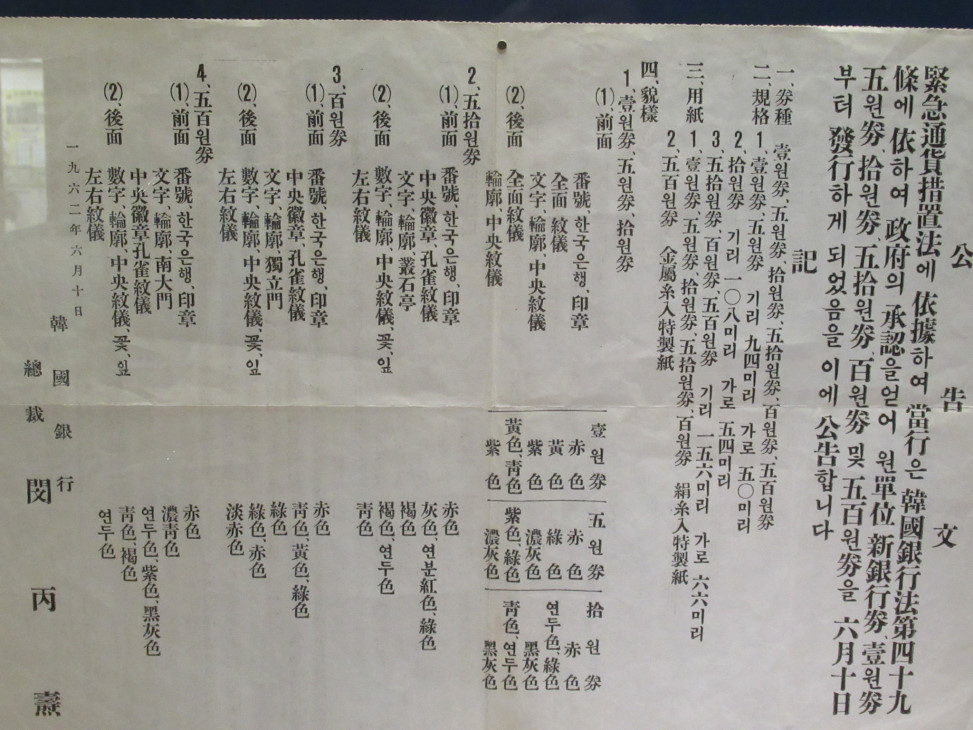 公告文
緊急通貨措置法에 依據하여 當行은 韓國銀行法第四十九
條에 依하여 政府의 承認을얻어 원單位 新銀行券、壹원券
五원券、拾원券、五拾원券、百원券 및 五百원券을 六月十日
부터 發行하게 되었음을 이에 公告합니다
記
一、券種 壹원券、五원券、拾원券、五拾원券、百원券、五百원券
二、規格 1、壹원券、五원券 기리 九四미리 가로 五〇미리
2、拾원券 기리 一〇八미리 가로 五四미리
3、五拾원券、百원券、五百원券 기리 一五六미리 가로 六六미리
三、用紙 1、壹원券、五원券、拾원券、五拾원券、百원券 絹糸入特製紙
2、五百원券 金屬糸入特製紙
四、貌樣
1、壹원券、五원券、拾원券
壹원券 五원券 拾원券
(1)、前面 番號、한국은행、印章 赤色 赤色 赤色
全面紋儀 黃色 綠色 연두色、綠色
文字、輪廓、中央紋儀 紫色 濃灰色 黑灰色
(2)、後面 全面紋儀 黃色、青色 紫色、綠色 青色、연두色
輪廓、中央紋儀 紫色 濃灰色 黑灰色
2、五拾원券
(1)、前面 番號、한국은행、印章 赤色
中央徽章、孔雀紋儀 灰色、연분紅色、綠色
文字、輪廓、叢石亭 褐色
(2)、後面 數字、輪廓、中央紋儀、꽃、잎 褐色、연두色
左右紋儀 青色
3、百원券
(1)、前面 番號、한국은행、印章 赤色
中央徽章、孔雀紋儀 青色、黃色、綠色
文字、輪廓、獨立門 綠色
(2)、後面 數字、輪廓、中央紋儀、꽃、잎 綠色、赤色
左右紋儀 淡赤色
4、五百원券
(1)、前面 番號、한국은행、印章 赤色
文字、輪廓、南大門 濃青色
中央徽章、孔雀紋儀 연두色、紫色、黑灰色
(2)、後面 數字、輪廓、中央紋儀、꽃、잎 青色、褐色
左右紋儀 연두色
一九六二年六月十日
韓國銀行
總裁 閔丙燾